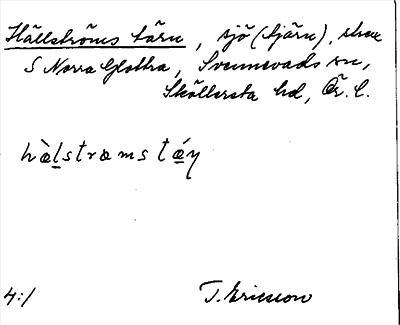 Hällströms tärn, sjö (tjärn), strax
S Norra Glottra, Svennevads sn,
Sköllersta hd, Ör. l.
hàlstrœmstǽɳ
4:1 T. Ericsson